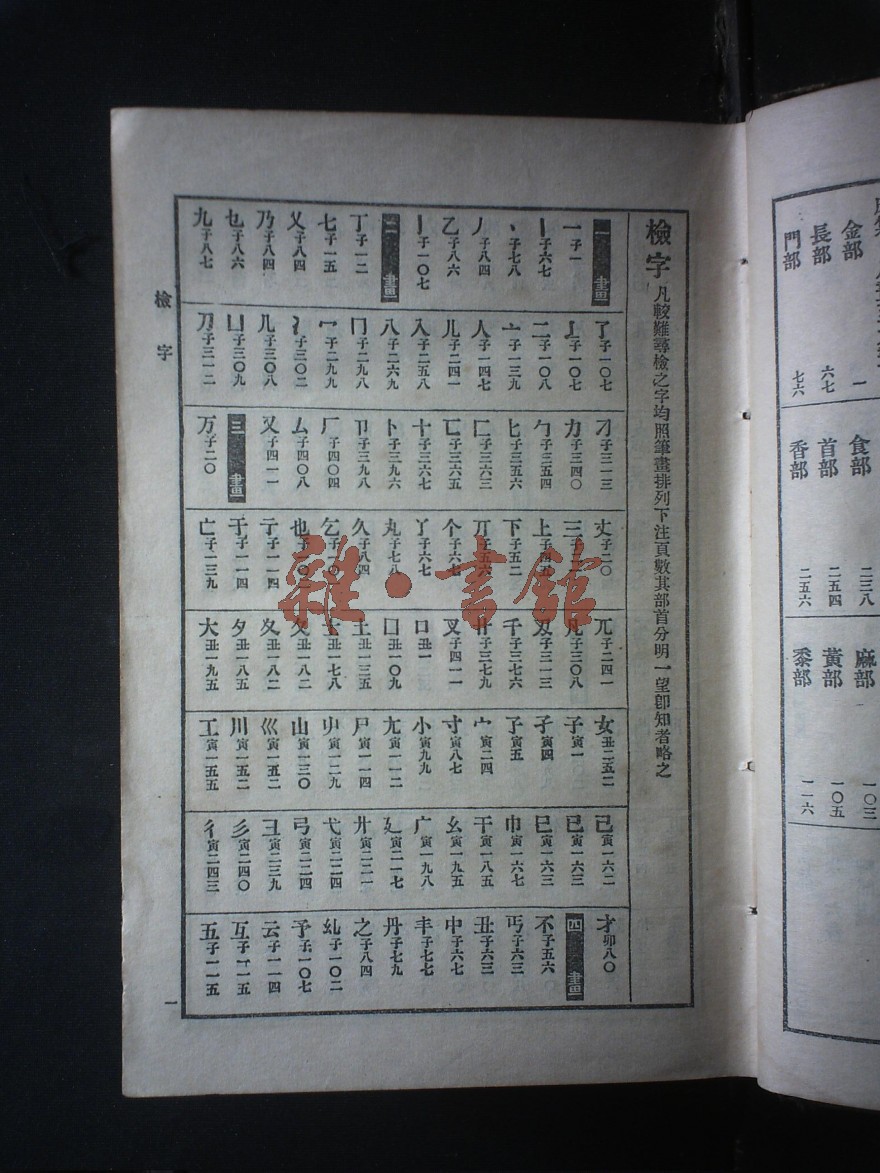 檢字 凡較難尋檢之字均照筆畫排列下注頁數其部首分明一望卽知者略之
一畫
一 子一
丨 子六七
丶 子七八
丿 子八四
乙 子八六
亅 子一〇七
二畫
丁 子一二
七 子一五
又 子八四
乃 子八四
乜 子八六
九 子八七
了 子一〇七
二 子一〇八
亠 子一三九
人 子一四七
儿 子二四一
入 子二五八
八 子二六九
冂 子二九八
冖 子二九九
冫 子三〇二
几 子三〇八
凵 子三〇九
刀 子三一二
刁 子三一三
力 子三四〇
勹 子三五四
匕 子三五六
匚 子三六三
匸 子三六五
十 子三六七
卜 子三九六
卩 子三九八
厂 子四〇四
厶 子四〇八
又 子四一一
三畫
万 子二〇
丈 子二〇
三
上
下 子五二
丌 子五六
个 子六七
丫 子六七
丸 子七八
久 子八四
乞
也
亍 子一一四
于 子一一四
亡 子一三九
兀 子二四一
凡 子三〇八
刄 子三一三
千 子三七六
廾 子三七九
叉 子四一一
口 丑一
囗 丑一〇九
土 丑一三五
士 丑一七八
夂 丑一八二
夊 丑一八二
夕 丑一八五
大 丑一九五
女 丑二五二
子 寅一
孑 寅四
孓 寅五
宀 寅二四
寸 寅八七
小 寅九九
尢 寅一一二
尸 寅一一四
屮 寅一二九
山 寅一三〇
巛 寅一五二
川 寅一五二
工 寅一五五
己 寅一六二
已 寅一六三
巳 寅一六三
巾 寅一六七
干 寅一八五
幺 寅一九五
广 寅一九八
廴 寅二一七
廾 寅二二一
弋 寅二二四
弓 寅二二四
彐 寅二三九
彡 寅二四〇
彳 寅二四三
才 卯八〇
四畫
不 子五六
丐 子六三
丑 子六三
中 子六七
丰 子七七
丹 子七九
之 子八四
乣 子一〇二
予 子一〇七
云 子一一四
互 子一一五
五 子一一五
檢字
一
雜·書館
金部 一
長部 六七
門部 七六
食部 二三八
首部 二五四
香部 二五六
麻部 一〇三
黃部 一〇五
黍部 一一六